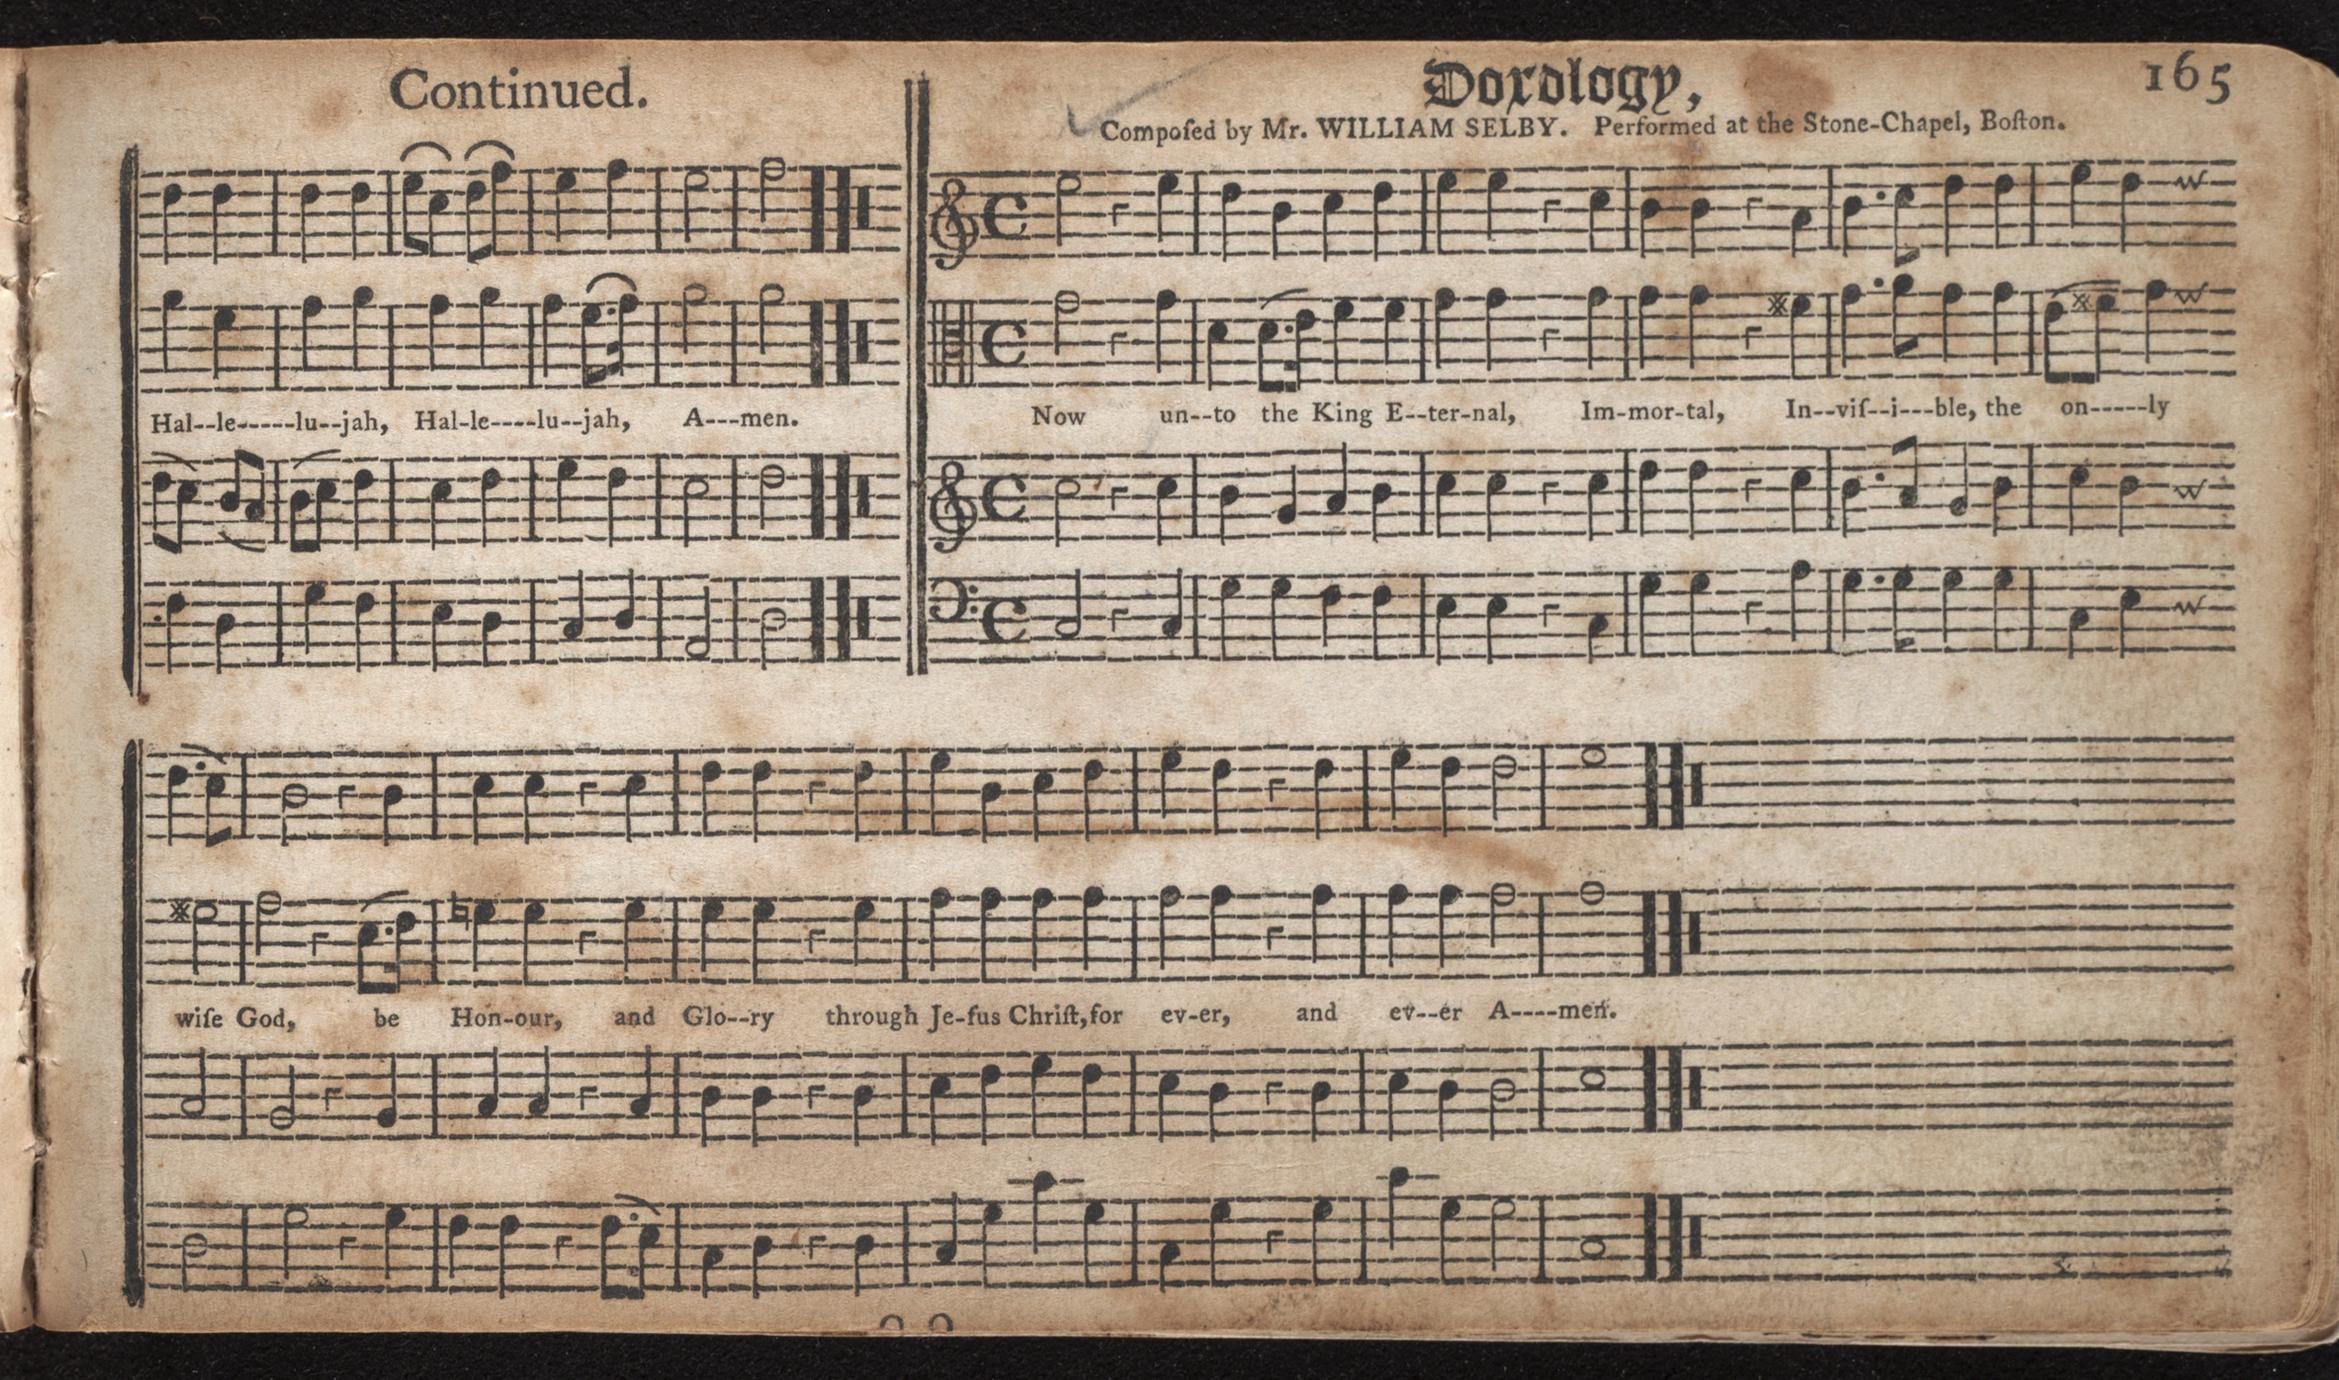 Continued.
Hal--le-----lu--jah, Hal-le----lu--jah, A---men.
Doxology,
165
Compoſed by Mr. WILLIAM SELBY. Performed at the Stone-Chapel, Boſton.
Now un--to the King E--ter-nal, Im-mor-tal, In--viſ--i---ble, the on-----ly
wiſe God, be Hon-our, and Glo--ry through Je-ſus Chriſt, for ev-er, and ev--er A----men.